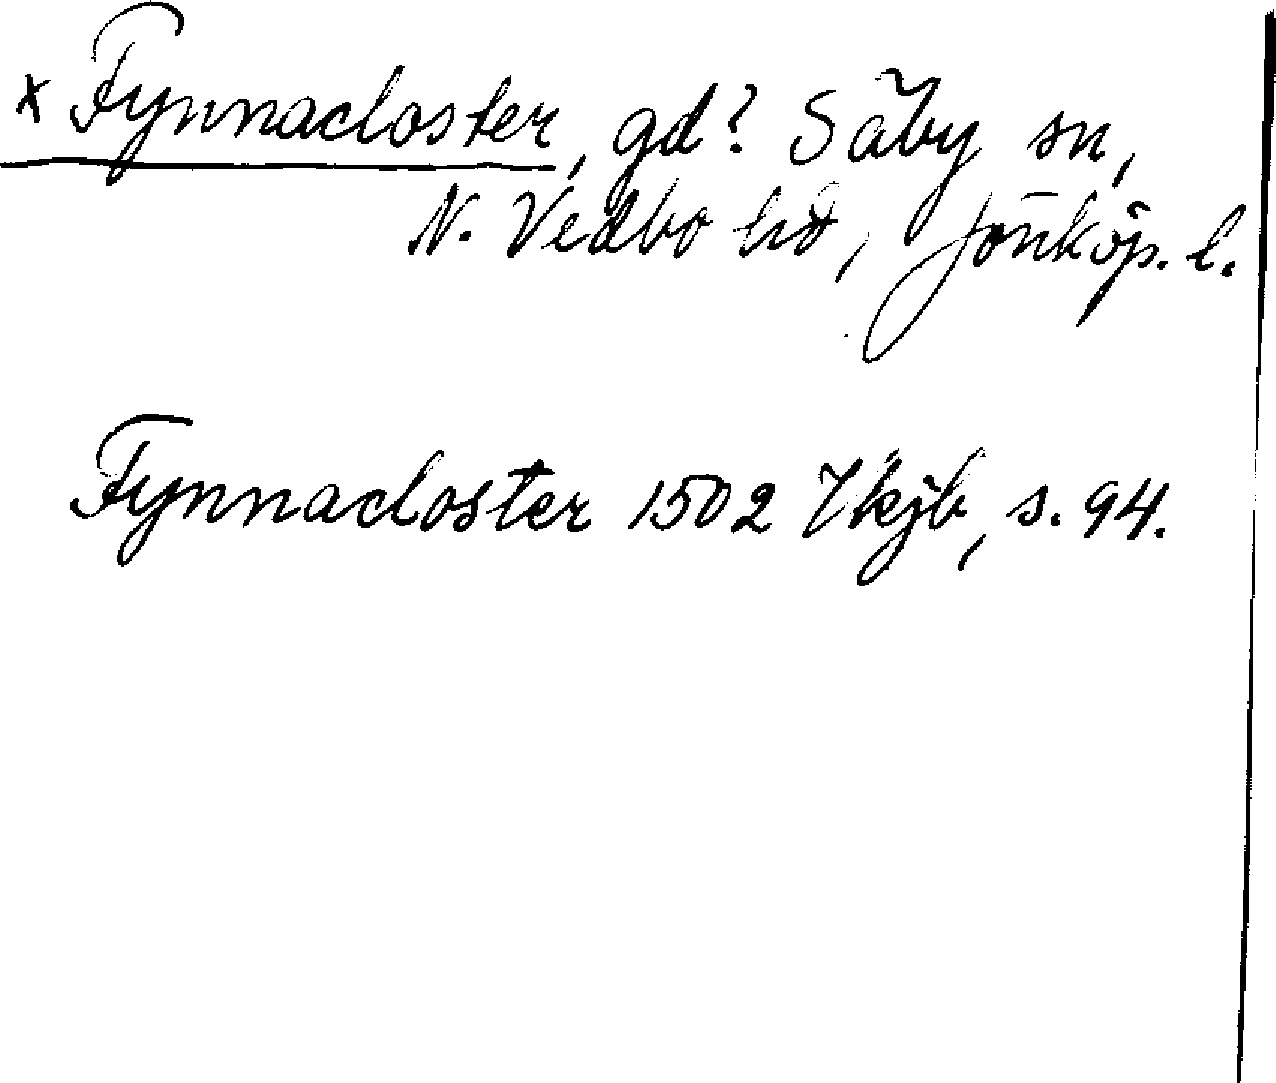 x Fynnacloster, gd? Säby sn,
N. Vedbo hd, Jönköp. l.
Fynnacloster 1502 Vkjb, s. 94.